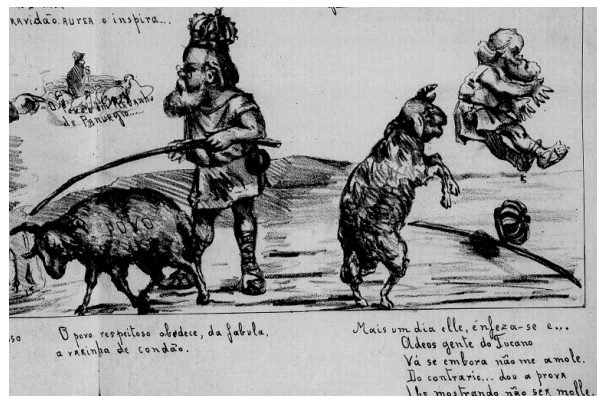 RAVIDÃO. AUREA o inspira...
de Panurgio...
POVO
O povo respeitoso obedece, da fabula,
a varinha de condão.
Mais um dia elle, enfeza-se e...
Adeos gente do Tucano
Vá se embora não me amole.
Do contrario... dou a prova
lhe mostrando não ser molle.